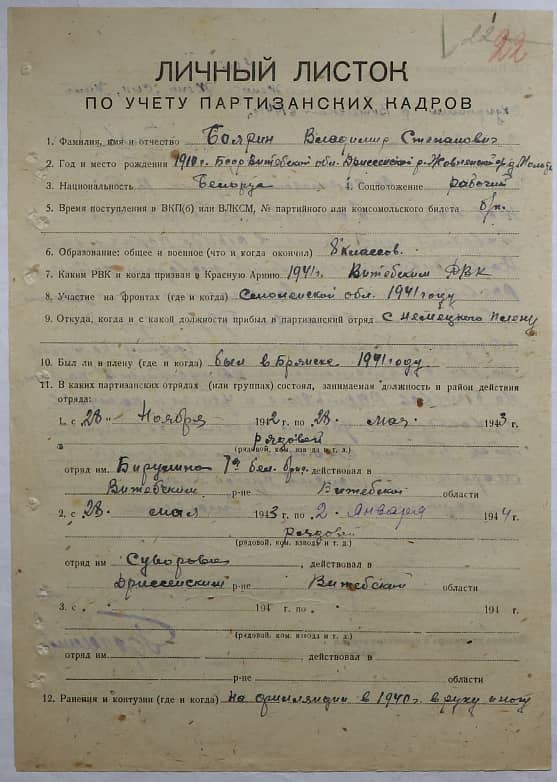 22 22
ЛИЧНЫЙ ЛИСТОК
ПО УЧЕТУ ПАРТИЗАНСКИХ КАДРОВ
1. Фамилия, имя и отчество Боярин Владимир Степанович
2. Год и место рождения 1910 г. БССР Витебской обл. Дриссенский р.
3. Национальность Белорус 4. Соцположение рабочий
5. Время поступления в ВКП(б) или ВЛКСМ, № партийного или комсомольского билета б/п.
6. Образование: общее и военное (что и когда окончил) 8 классов.
7. Каким РВК и когда призван в Красную Армию 1941 г. Витебским РВК
8. Участие на фронтах (где и когда) Смоленской обл. 1941 году
9. Откуда, когда и с какой должности прибыл в партизанский отряд с немецкого плену
10. Был ли в плену (где и когда) был в Брянске 1941 году
11. В каких партизанских отрядах (или группах) состоял, занимаемая должность и район действия
отряда:
1. с 28 " Ноября 1942 г. по 28. мая 1943 г.
рядовой
(рядовой, ком. взвода и т. д.)
отряд им. Бирулина 1я бел. бриг. действовал в
Витебском р-не Витебской области
2. с 28. мая 1943 г. по 2. Января 1944 г.
рядовой
(рядовой, ком. взвода и т. д.)
отряд им Суворова, действовал в
Дриссенским р-не Витебской области
3. с 194 г. по 194 г.
(рядовой, ком. взвода и т. д.)
отряд им. , действовал в
р-не области
12. Ранения и контузии (где и когда) на финляндии в 1940 г в руку и ногу